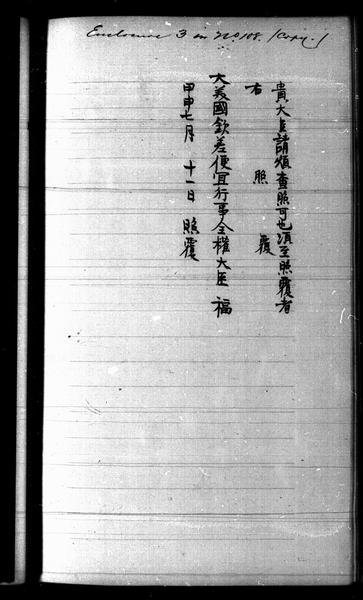 Enclosure 3 in No. 108. (Copy.)
貴大臣請煩查照可也須至照覆者
右 照 覆
大美國欽差便宜行事全權大臣 福
甲申七月 十一日 照覆